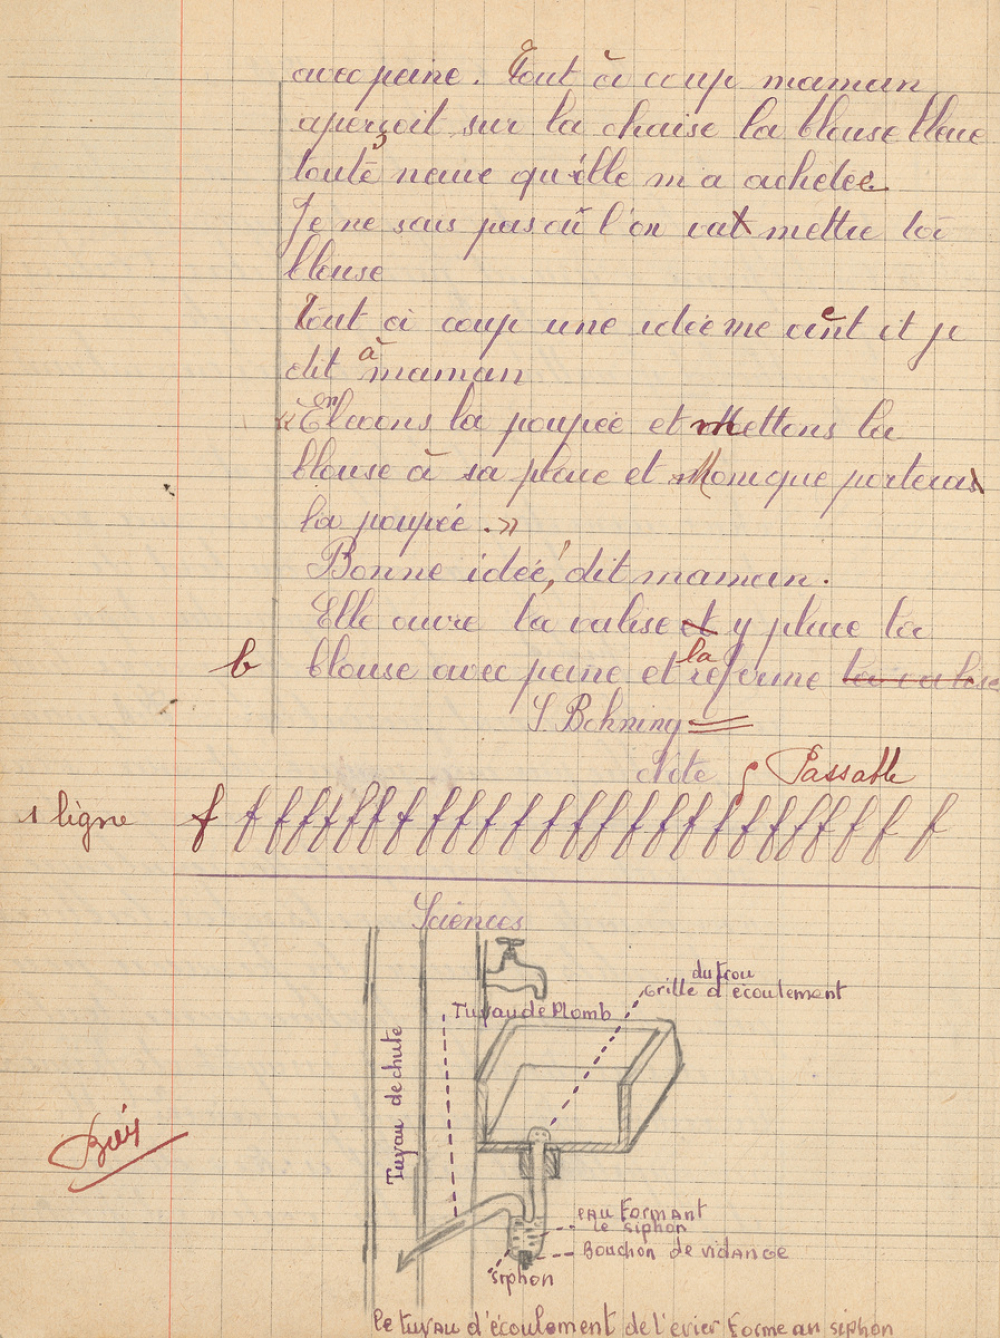 avec peine. Tout à coup maman
aperçoit sur la chaise la blouse bleue
toute neuve qu'elle m'a achetée
Je ne sais pas où l'on vat mettre la
blouse
Tout à coup une idée me vient et je
dit à maman
« Enlevons la poupée et mettons la
blouse à sa place et Monique porteras
la poupée. »
Bonne idée! dit maman.
Elle ouvre la valise et y place la
b blouse avec peine et la referme la valise
S. Behning
Note Passable
1 ligne f f f f f f f f f f f f f f f f f f f f f f f f f f
Sciences
du trou
Grille d'écoulement
Tuyau de Plomb
Tuyau de chute
Bien
eau formant
le siphon
Bouchon de vidange
siphon
le tuyau d'écoulement de l'évier forme an siphon